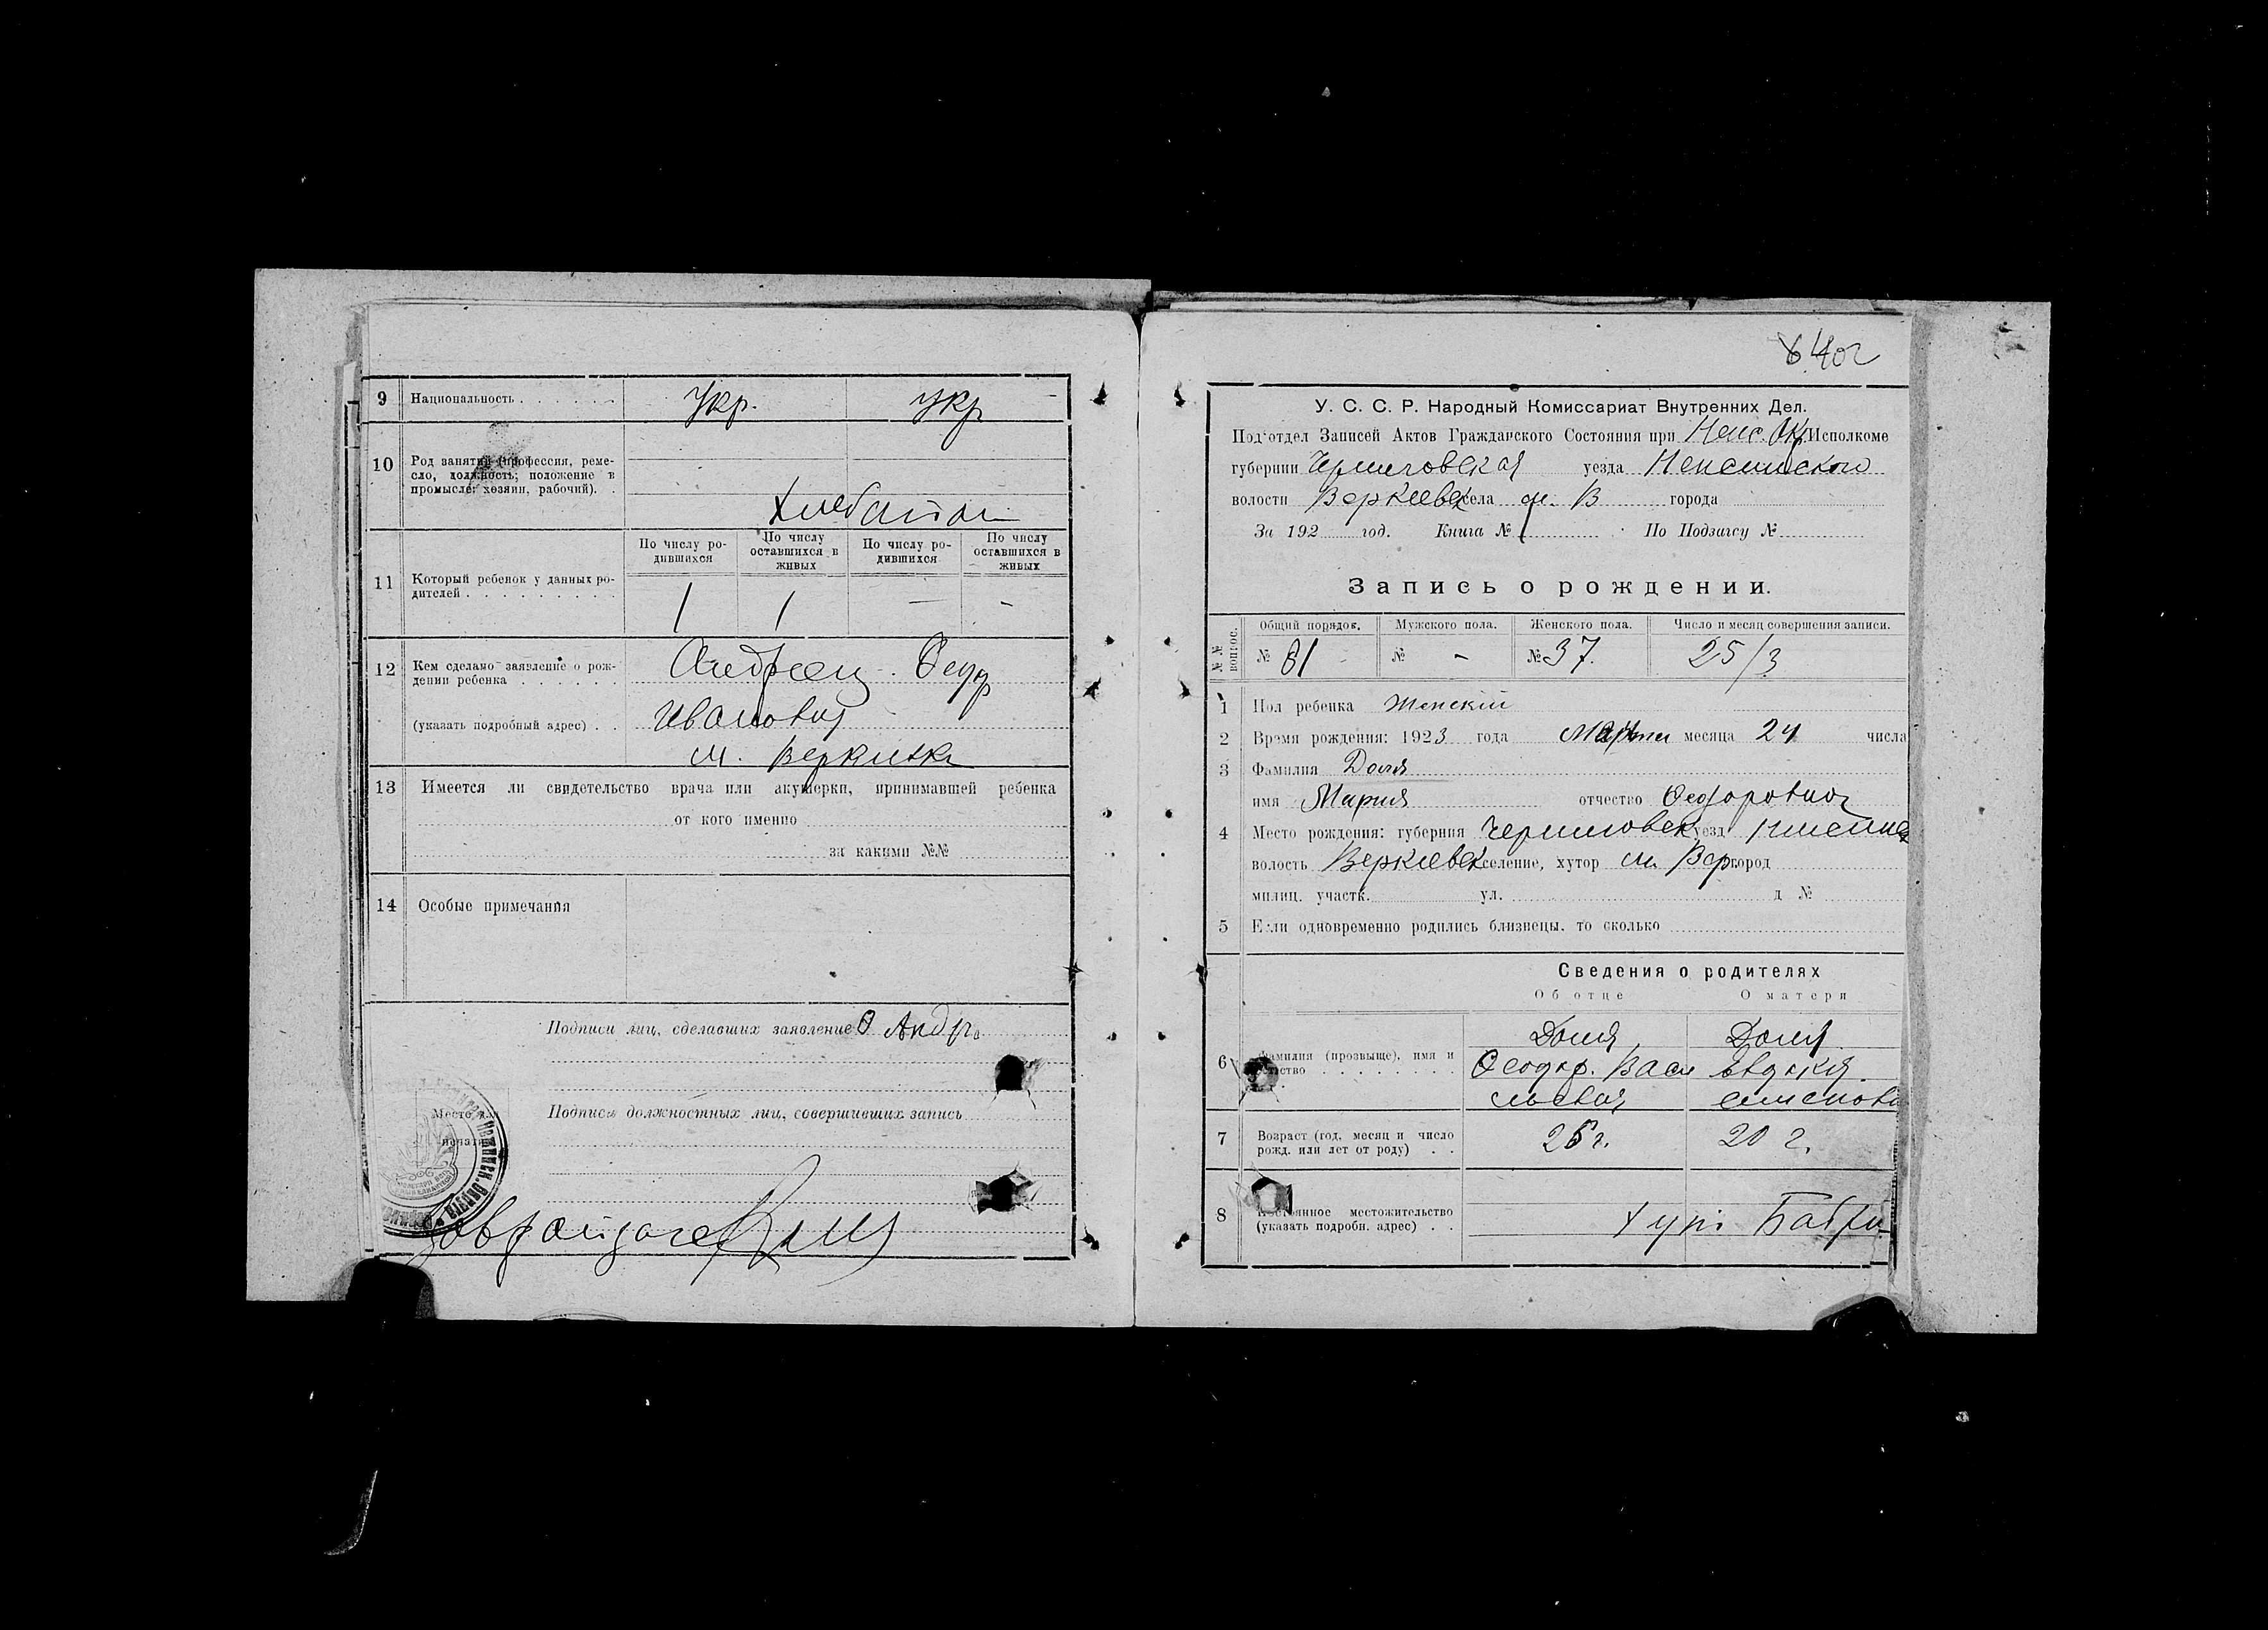 9 Национальность . . . . . . Укр. Укр
10 Род занятий (профессия, реме-
сло, должность; положение в
промысле: хозяин, рабочий). .
11 Который ребенок у данных ро-
дителей . . . . . . . . .
По числу ро-
дившихся
По числу
оставшихся в
живых
По числу ро-
дившихся
По числу
оставшихся в
живых
1 1 — -
12 Кем сделано заявление о рож-
дении ребенка . . . . . .
(указать подробный адрес) . .
м.
13 Имеется ли свидетельство врача или акушерки, принимавшей ребенка
от кого именно
за какими №№
14 Особые примечания
Подписи лиц, сделавших заявление
Место для
печати
Подписи должностных лиц, совершивших запись
У. С. С. Р. Народный Комиссариат Внутренних Дел.
Подотдел Записей Актов Гражданского Состояния при Исполкоме
губернии Черниговская уезда
волости Веркиевск села м. В города
За 192 год. Книга № По Подзагсу №
Запись о рождении.
№№ вопрос.
Общий порядок. Мужского пола. Женского пола. Число и месяц совершения записи.
№ 81 № - № 37. 25/3
1 Пол ребенка женский
2 Время рождения: 1923 года марта месяца 24 числа
3 Фамилия Доля
имя Мария отчество Феодоровна
4 Место рождения: губерния Черниговск уезд
волость Веркиевск селение, хутор м. Вер город
милиц. участк. ул. д №
5 Если одновременно родились близнецы, то сколько
Сведения о родителях
Об отце О матери
6 Фамилия (прозвище), имя и
отчество . . . . . . . .
Доля Доля
Феодор. Васи Евдокия
7 Возраст (год, месяц и число
рожд. или лет от роду) . .
25 г. 20 г.
8 Постоянное местожительство
(указать подробн. адрес) . .